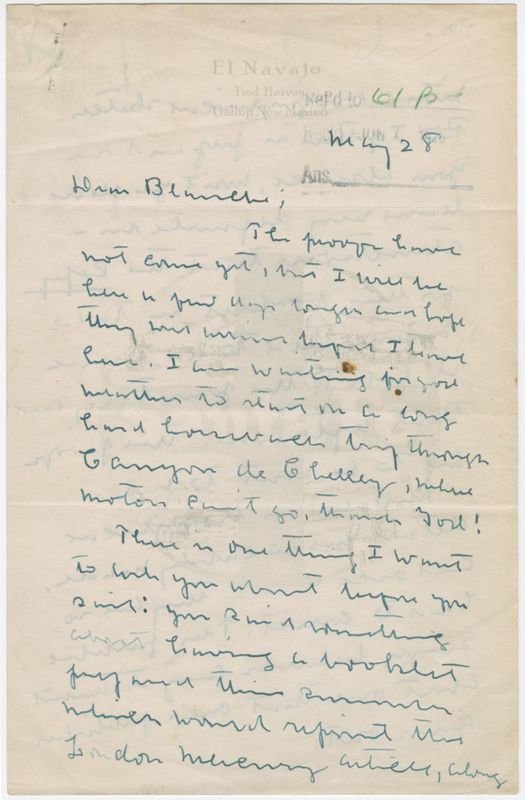 El Navajo
Fred Harvey
Gallup New Mexico
Rep'd to 61 B-
May 28
Ans.
Dear Blanche;
The proofs have
not come yet, but I will be
here a few days longer and hope
they will arrive before I leave
here. I am waiting for good
weather to start on a long
hard horseback trip through
Canyon de Chelley, where
motors can't go, thank God!
There is one thing I want
to ask you about before you
sail: you said something
about having a booklet
prepared this summer
which would reprint the
London Mercury article, along